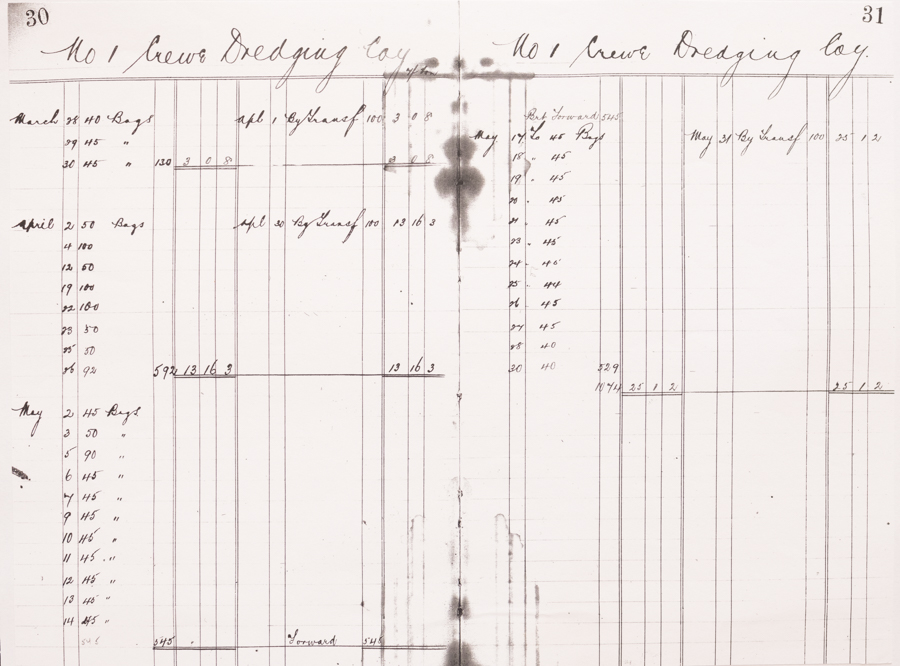 30
No 1 Crewe Dredging Coy
March 28 40 Bags Apl 1 By Transf 100 3 0 8
29 45 "
30 45 " 130 3 0 8 3 0 8
April 2 50 Bags Apl 30 By Transf 100 13 16 3
4 100
12 50
19 100
22 100
23 50
25 50
26 92 592 13 16 3 13 16 3
May 2 45 Bags
3 50 "
5 90 "
6 45 "
7 45 "
9 45 "
10 45 "
11 45 "
12 45 "
13 45 "
14 45 "
545 545 Forward 545
31
No 1 Crewe Dredging Coy.
Brt Forward 545
May 17 To 45 Bags May 31 By Transf 100 25 1 2
18 " 45
19 " 45
20 " 45
21 " 45
23 " 45
24 " 45
25 " 44
26 " 45
27 " 45
28 " 40
30 40 529
1074 25 1 2 25 1 2